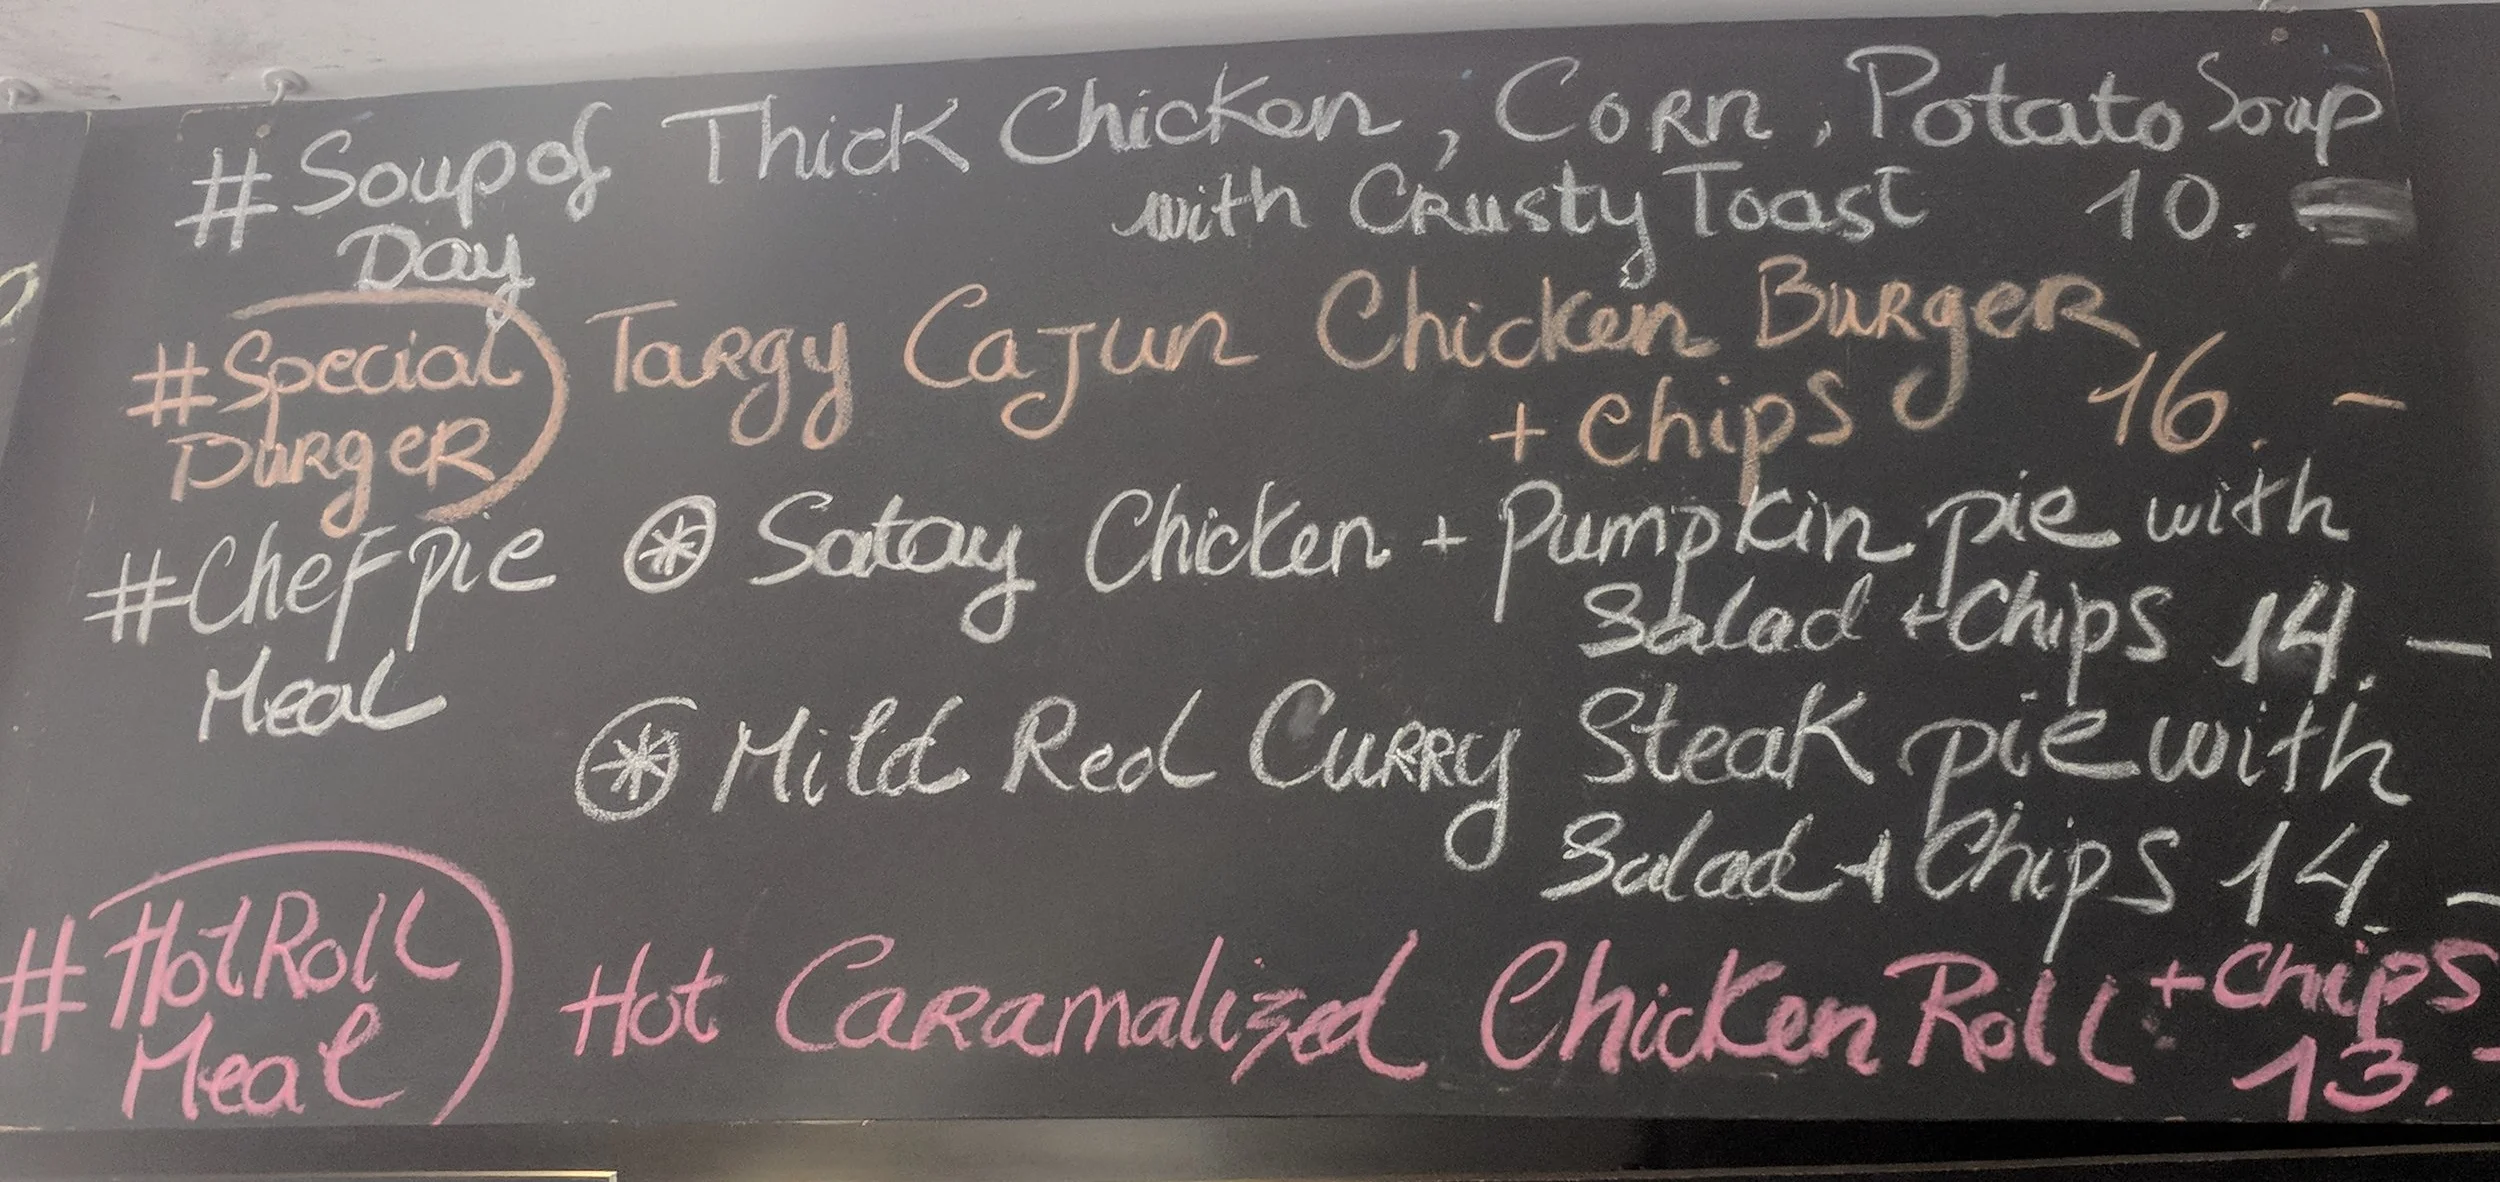 #Soup of Thick Chicken, Corn, Potato Soup
Day with Crusty Toast 10.-
#Special Targy Cajun Chicken Burger
Burger + Chips 16.-
#Chef pie ⊛ Satay Chicken + Pumpkin pie with
Meal Salad + Chips 14.-
⊛ Mild Red Curry Steak pie with
Salad + Chips 14.-
#Hot Roll Hot Caramalized Chicken Roll + Chips
Meal 13.-